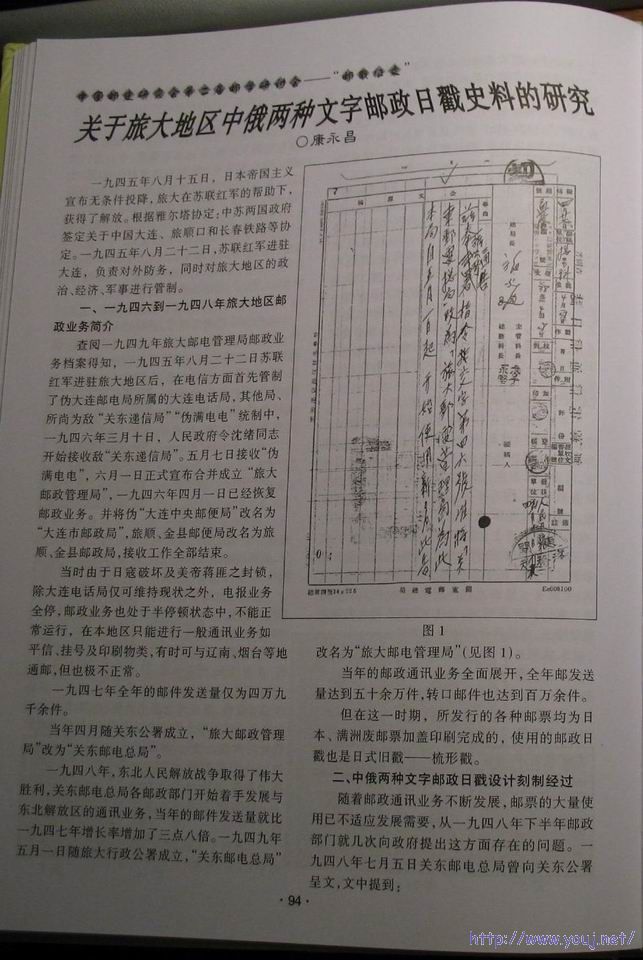 关于旅大地区中俄两种文字邮政日戳史料的研究
○康永昌
一九四五年八月十五日，日本帝国主义
宣布无条件投降，旅大在苏联红军的帮助下，
获得了解放。根据雅尔塔协定；中苏两国政府
签定关于中国大连、旅顺口和长春铁路等协
定。一九四五年八月二十二日，苏联红军进驻
大连，负责对外防务，同时对旅大地区的政
治、经济、军事进行管制。
一、一九四六到一九四八年旅大地区邮
政业务简介
查阅一九四九年旅大邮电管理局邮政业
务档案得知，一九四五年八月二十二日苏联
红军进驻旅大地区后，在电信方面首先管制
了伪大连邮电局所属的大连电话局，其他局、
所尚为敌“关东递信局”“伪满电电”统制中，
一九四六年三月十日，人民政府令沈绪同志
开始接收敌“关东递信局”。五月七日接收“伪
满电电”，六月一日正式宣布合并成立“旅大
邮政管理局”，一九四六年四月一日已经恢复
邮政业务。并将伪“大连中央邮便局”改名为
“大连市邮政局”，旅顺、金县邮便局改名为旅
顺、金县邮政局，接收工作全部结束。
当时由于日寇破坏及美帝蒋匪之封锁，
除大连电话局仅可维持现状之外，电报业务
全停，邮政业务也处于半停顿状态中，不能正
常运行，在本地区只能进行一般通讯业务如
平信、挂号及印刷物类，有时可与辽南、烟台等地
通邮，但也极不正常。
一九四七年全年的邮件发送量仅为四万九
千余件。
当年四月随关东公署成立，“旅大邮政管理
局”改为“关东邮电总局”。
一九四八年，东北人民解放战争取得了伟大
胜利，关东邮电总局各邮政部门开始着手发展与
东北解放区的通讯业务，当年的邮件发送量就比
一九四七年增长率增加了三点八倍。一九四九年
五月一日随旅大行政公署成立，“关东邮电总局”
關東郵電總局
Ee608100
图1
改名为“旅大邮电管理局”（见图1）。
当年的邮政通讯业务全面展开，全年邮发送
量达到五十余万件，转口邮件也达到百万余件。
但在这一时期，所发行的各种邮票均为日
本、满洲废邮票加盖印刷完成的，使用的邮政日
戳也是日式旧戳——梳形戳。
二、中俄两种文字邮政日戳设计刻制经过
随着邮政通讯业务不断发展，邮票的大量使
用已不适应发展需要，从一九四八年下半年邮政
部门就几次向政府提出这方面存在的问题。一
九四八年七月五日关东邮电总局曾向关东公署
呈文，文中提到：
·94·
http://www.youj.net/